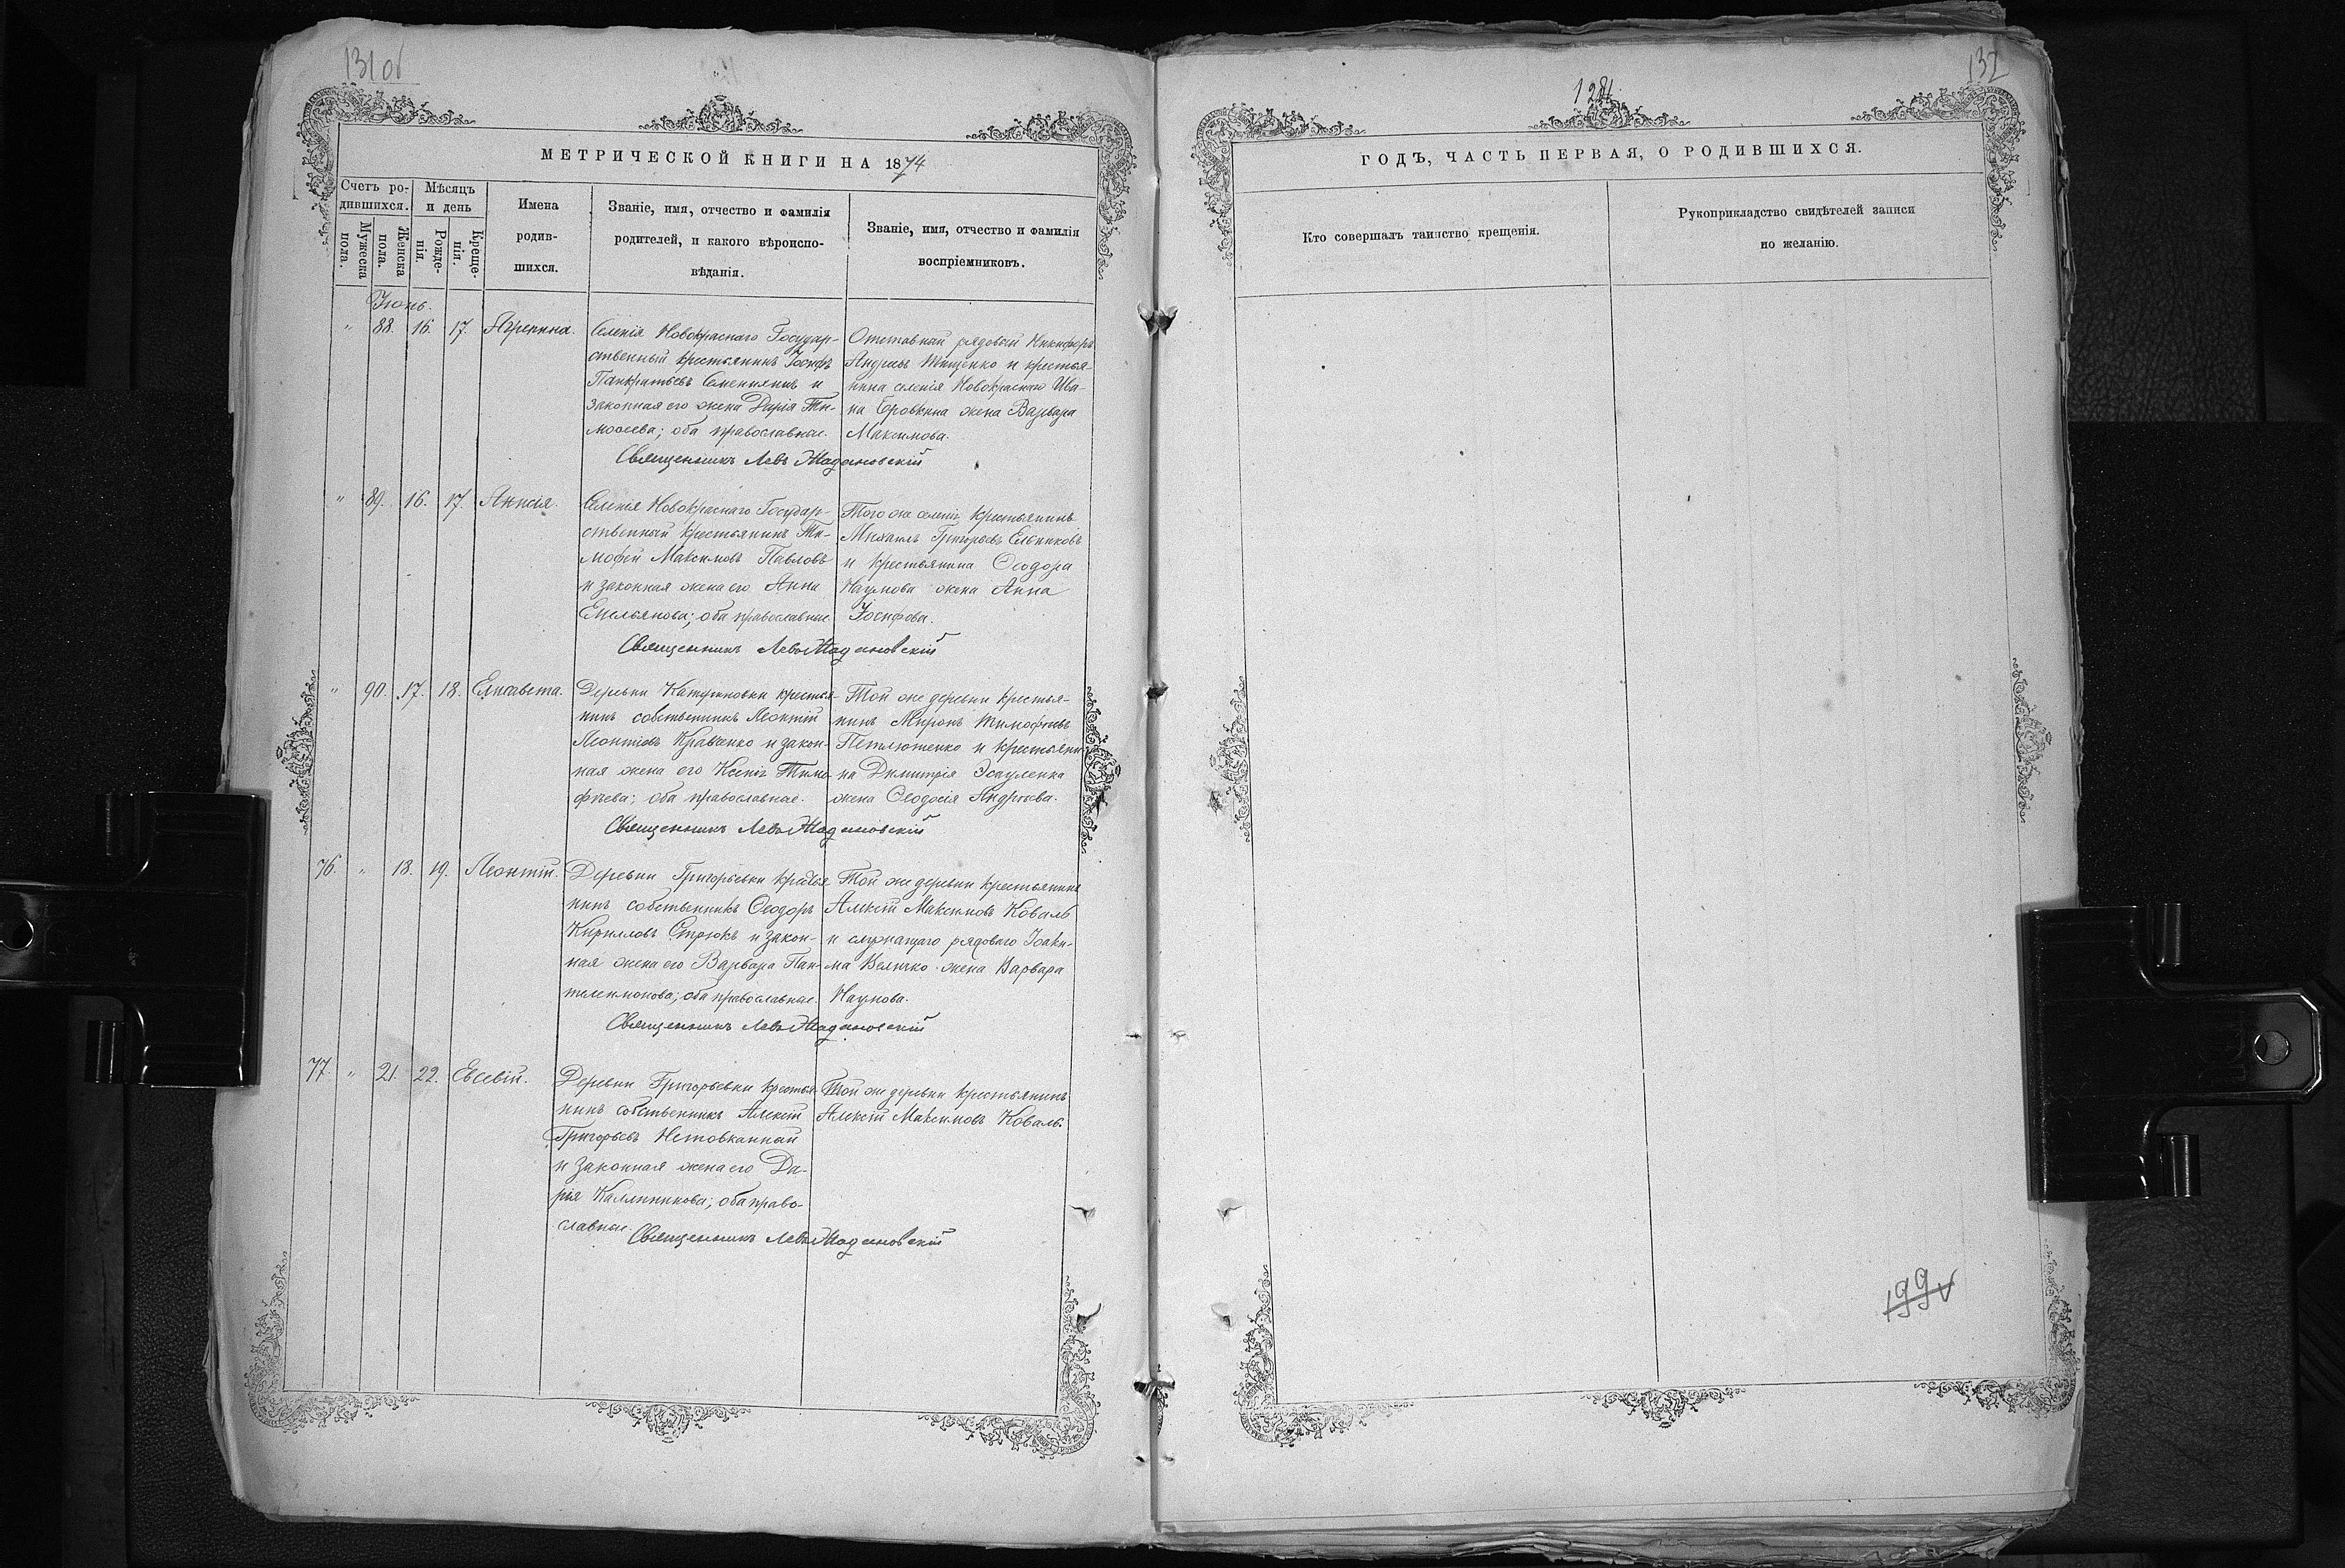 131 об
МЕТРИЧЕСКОЙ КНИГИ НА 1874
Счетъ родившихся.
Мужеска пола.
Женска пола.
Мѣсяцъ и день
Рожденія.
Крещенія.
Имена
родив-
шихся.
Званіе, имя, отчество и фамилія
родителей, и какого вѣроиспо-
вѣданія.
Званіе, имя, отчество и фамилія
воспріемниковъ.
Іюнь.
" 88. 16. 17. Агрепина.
Селенія Новокраснаго Государ-
ственный крестьянинъ Іосифъ
Панкратьевъ и
законная его жена Дарія Ти-
моѳеева; оба православные.
Отставный рядовой Никифоръ
Андреевъ Тищенко и крестья-
нина селенія Новокраснаго Ива-
на Бровкина жена Варвара
Максимова.
Священникъ Левъ
" 89. 16. 17. Анисія.
Селенія Новокраснаго Государ-
ственный крестьянинъ Ти-
мофей Максимовъ Павловъ
и законная жена его Анна
Емельянова; оба православные
Того же селенія крестьянинъ
Михаилъ Григорьевъ Ельниковъ
и крестьянина Ѳеодора
Наумова жена Анна
Іосифова.
Священникъ Левъ
" 90. 17. 18. Елисавета.
Деревни крестья-
нинъ собственникъ Леонтій
Леонтіевъ Кравченко и закон-
ная жена его Ксенія Тимо-
фѣева; оба православные.
Той же деревни крестья-
нинъ Миронъ Тимофѣевъ
Петлюченко и крестьяни-
на Димитрія Эсауленка
жена Ѳеодосія Андреева.
Священникъ Левъ
76. " 18. 19. Леонтій.
Деревни Григорьевки крестья
нинъ собственникъ Ѳеодоръ
Кирилловъ Стрюкъ и закон-
ная жена его Варвара Пан-
телеимонова; оба православные.
Той же деревни крестьянинъ
Алексій Максимовъ Коваль
и служащаго рядоваго Іоаки-
ма Величко жена Варвара
Наумова.
Священникъ Левъ
77. " 21. 22. Евсевій.
Деревни Григорьевки крестья
нинъ собственникъ Алексій
Григорьевъ Нетовканный
и законная жена его Да-
рія Каллиникова; оба право-
славные.
Той же деревни крестьянинъ
Алексій Максимовъ Коваль.
Священникъ Левъ
132
ГОДЪ, ЧАСТЬ ПЕРВАЯ, О РОДИВШИХСЯ.
Кто совершалъ таинство крещенія.
Рукоприкладство свидѣтелей записи
по желанію.
199